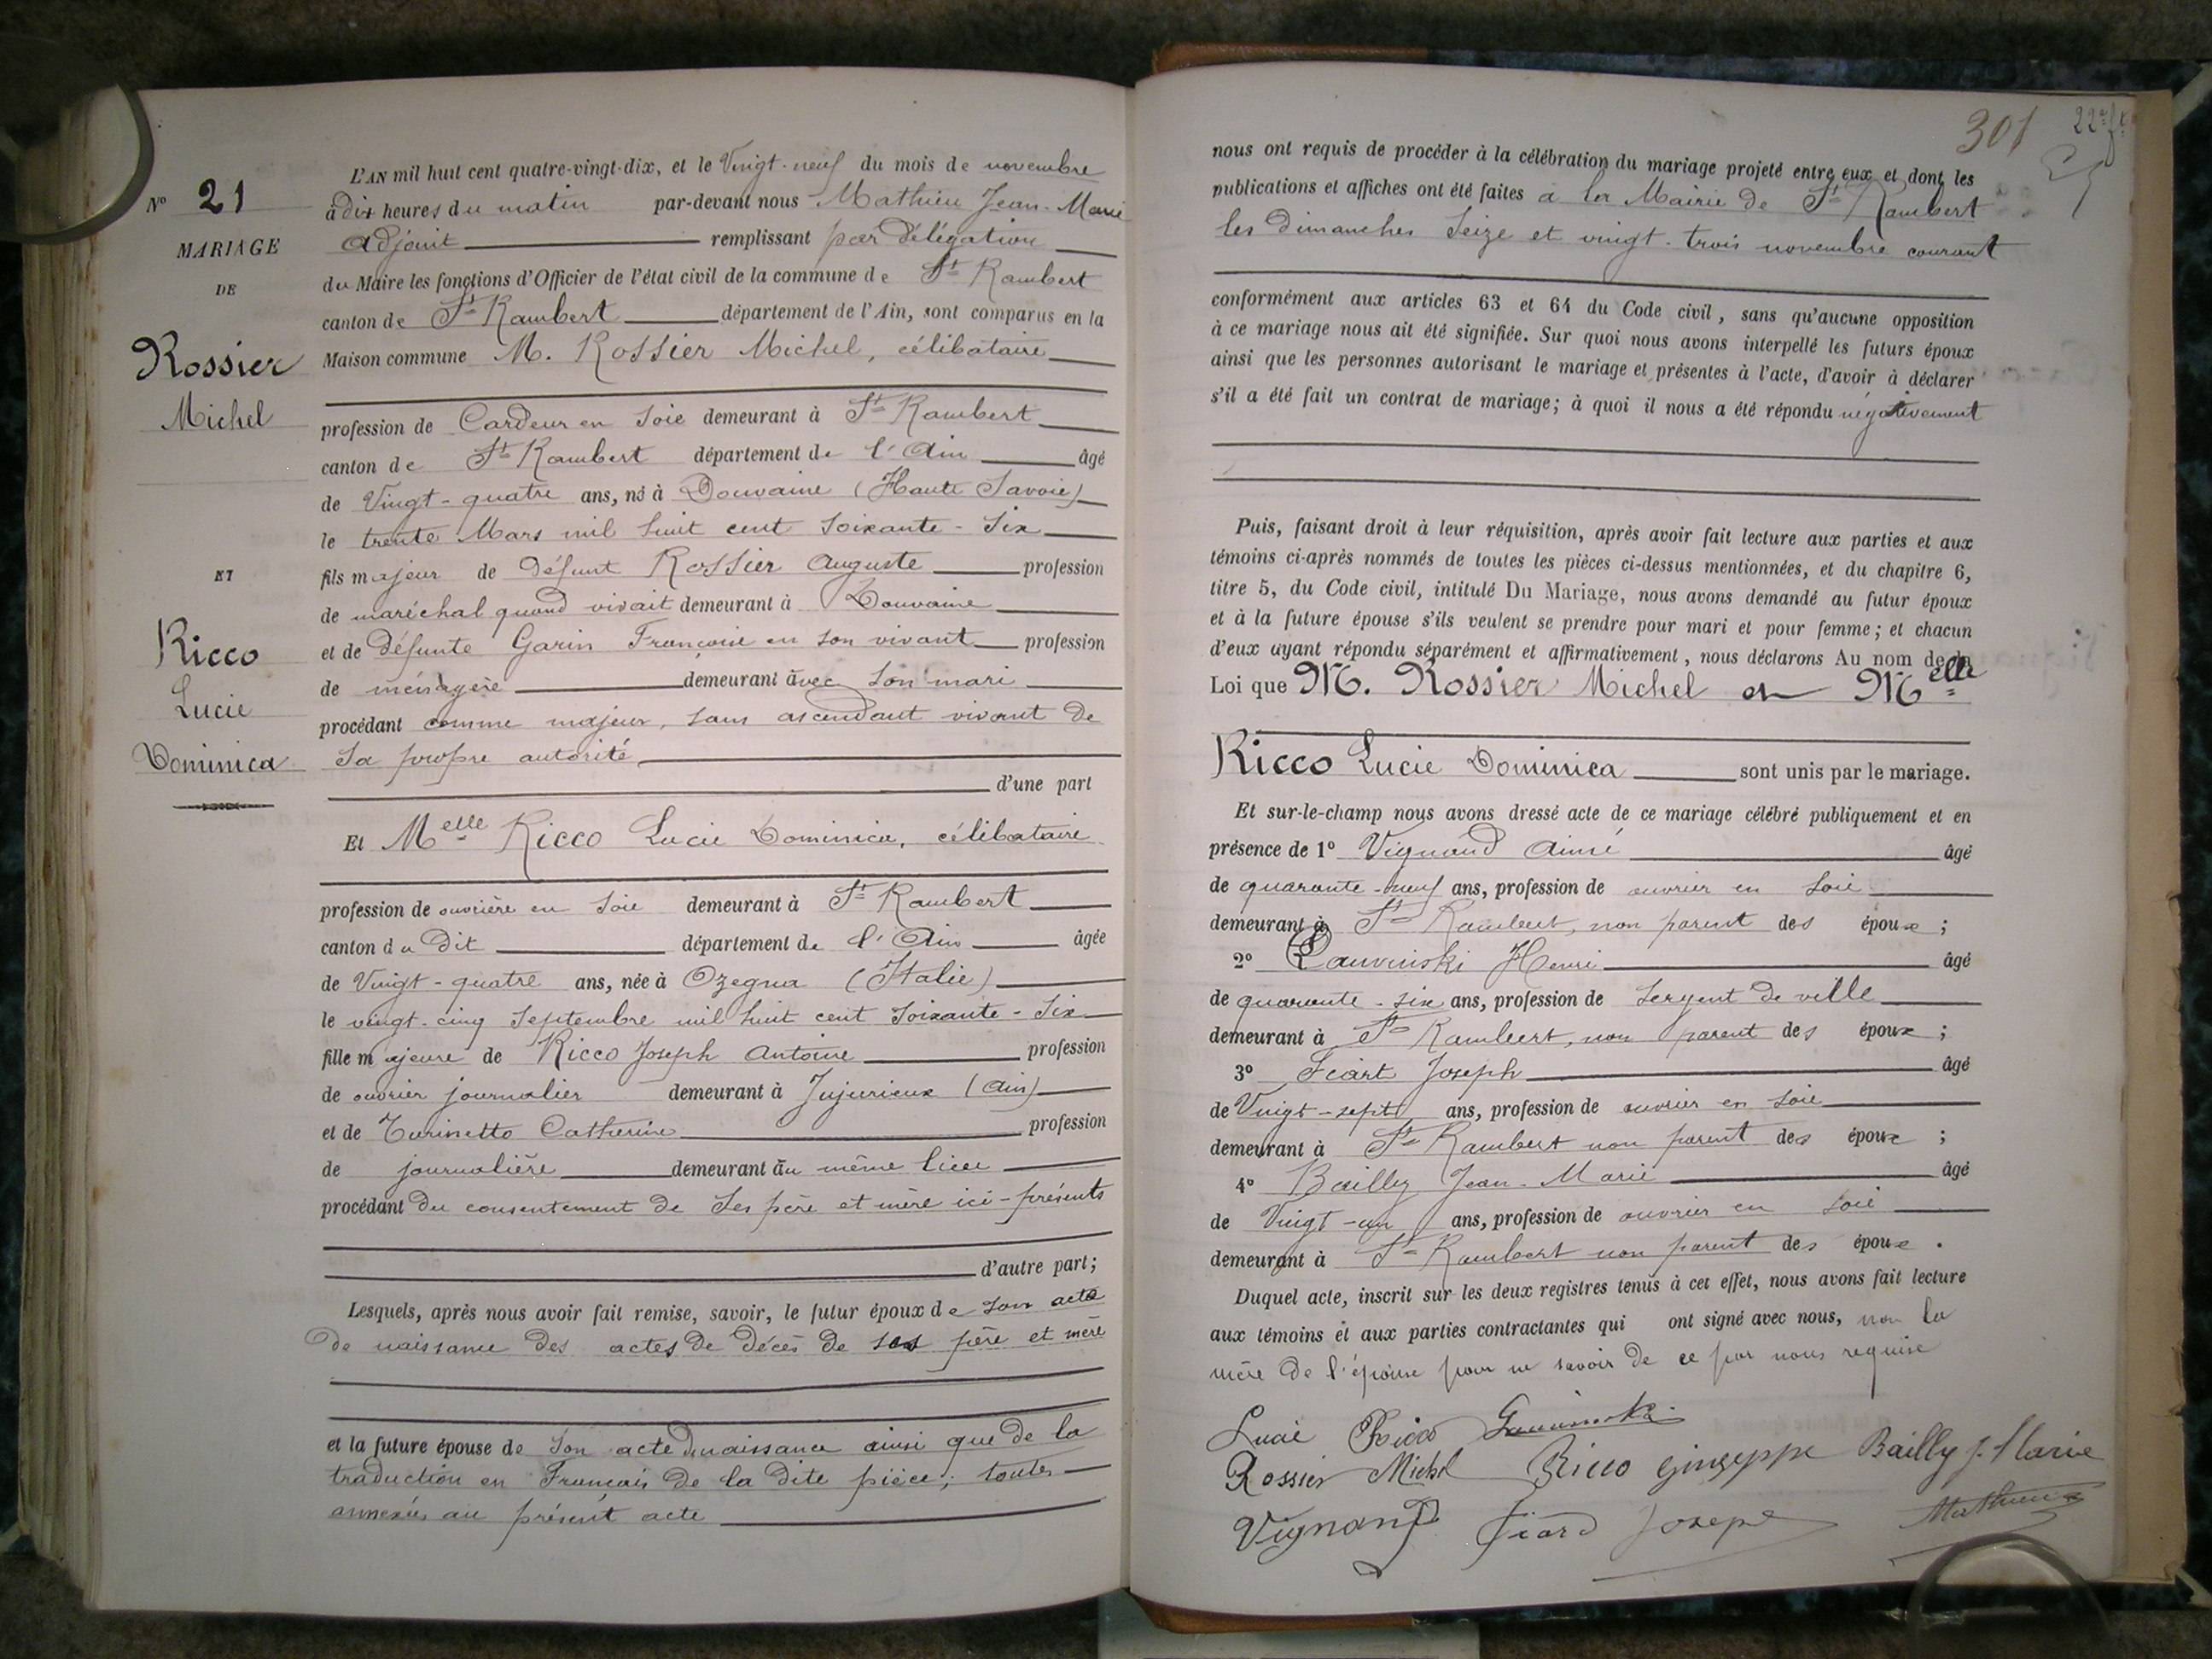 N° 21
MARIAGE
DE
Rossier
Michel
ET
Ricco
Lucie
Dominica
L'AN mil huit cent quatre-vingt-dix, et le Vingt-neuf du mois de novembre
à dix heures du matin par-devant nous Mathieu Jean-Marie
adjoint remplissant par délégation
du Maire les fonctions d'Officier de l'état civil de la commune de St Rambert
canton de St Rambert département de l'Ain, sont comparus en la
Maison commune M. Rossier Michel, célibataire
profession de Cardeur en soie demeurant à St Rambert
canton de St Rambert département de l'Ain âgé
de Vingt-quatre ans, né à Douvaine (Haute Savoie)
le trente Mars mil huit cent soixante-six
fils majeur de défunt Rossier Auguste profession
de maréchal quand vivait demeurant à Douvaine
et de défunte Garin Françoise en son vivant profession
de ménagère demeurant avec son mari
procédant comme majeur, sans ascendant vivant de
sa propre autorité
d'une part
Et Melle Ricco Lucie Dominica, célibataire
profession de ouvrière en soie demeurant à St Rambert
canton du dit département de l'Ain âgée
de Vingt-quatre ans, née à Ozegna (Italie)
le vingt-cinq septembre mil huit cent soixante-six
fille majeure de Ricco Joseph Antoine profession
de ouvrier journalier demeurant à Jujurieux (Ain)
et de Turinetto Catherine profession
de journalière demeurant au même lieu
procédant du consentement de ses père et mère ici-présents
d'autre part;
Lesquels, après nous avoir fait remise, savoir, le futur époux de son acte
de naissance des actes de décès de ses père et mère
et la future épouse de son acte de naissance ainsi que de la
traduction en Français de la dite pièce; toutes
annexées au présent acte
301
nous ont requis de procéder à la célébration du mariage projeté entre eux et dont les
publications et affiches ont été faites à la Mairie de St Rambert
les dimanches seize et vingt-trois novembre courant
conformément aux articles 63 et 64 du Code civil, sans qu'aucune opposition
à ce mariage nous ait été signifiée. Sur quoi nous avons interpellé les futurs époux
ainsi que les personnes autorisant le mariage et présentes à l'acte, d'avoir à déclarer
s'il a été fait un contrat de mariage; à quoi il nous a été répondu négativement
Puis, faisant droit à leur réquisition, après avoir fait lecture aux parties et aux
témoins ci-après nommés de toutes les pièces ci-dessus mentionnées, et du chapitre 6,
titre 5, du Code civil, intitulé Du Mariage, nous avons demandé au futur époux
et à la future épouse s'ils veulent se prendre pour mari et pour femme; et chacun
d'eux ayant répondu séparément et affirmativement, nous déclarons Au nom de la
Loi que M. Rossier Michel et Melle
Ricco Lucie Dominica sont unis par le mariage.
Et sur-le-champ nous avons dressé acte de ce mariage célébré publiquement et en
présence de 1° Vignand Aimé âgé
de quarante-neuf ans, profession de ouvrier en soie
demeurant à St Rambert, non parent des époux;
2° Henri âgé
de quarante-six ans, profession de sergent de ville
demeurant à St Rambert, non parent des époux;
3° Fiart Joseph âgé
de Vingt-sept ans, profession de ouvrier en soie
demeurant à St Rambert non parent des époux;
4° Bailly Jean-Marie âgé
de Vingt-un ans, profession de ouvrier en soie
demeurant à St Rambert non parent des époux.
Duquel acte, inscrit sur les deux registres tenus à cet effet, nous avons fait lecture
aux témoins et aux parties contractantes qui ont signé avec nous, non la
mère de l'épouse pour ne savoir de ce par nous requise
Lucie Ricco
Rossier Michel Ricco Giuseppe Bailly J. Marie
Vignand Fiard Joseph Mathieu